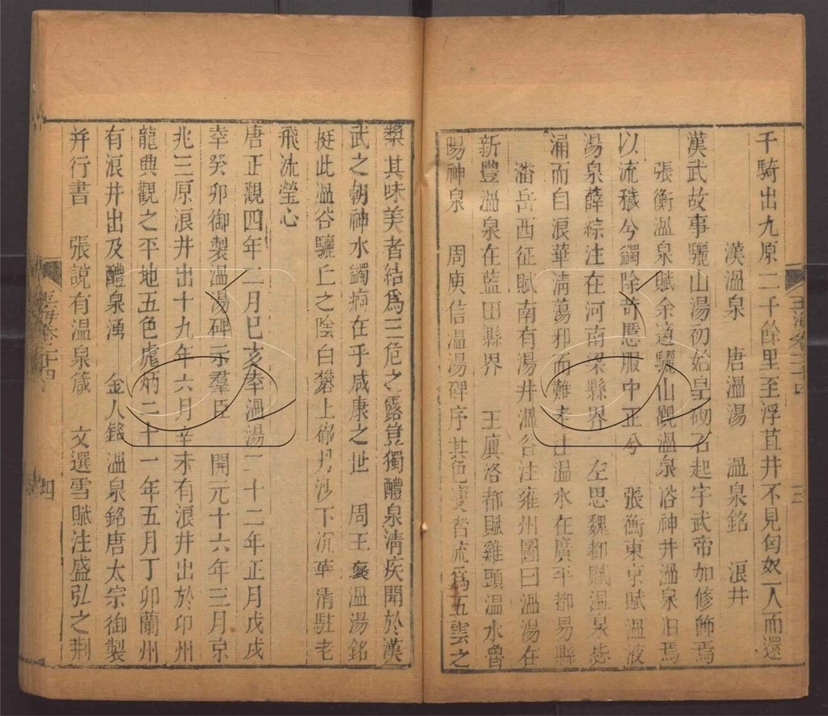 千騎出九原二千餘里至浮苴井不見匈奴一人而還
漢溫泉　唐溫湯　溫泉銘　浪井
漢武故事驪山湯初始皇砌石起宇武帝加修飾焉
張衡溫泉賦余適驪山觀溫泉浴神井溫泉汨焉
以流穢兮蠲除苛慝服中正兮　張衡東京賦溫液
湯泉薛綜注在河南梁縣界　左思魏都賦溫泉毖
涌而自浪華清蕩邪而難老注溫水在廣平都易縣
潘岳西征賦南有湯井溫谷注雍州圖曰溫湯在
新豐溫泉在藍田縣界　王廙洛都賦雞頭溫水魯
陽神泉　周庾信溫湯碑序其色變者流爲五雲之
玉海卷二十四
三
漿其味美者結爲三危之露豈獨醴泉消疾聞於漢
武之朝神水蠲痾在乎咸康之世　周王褒溫湯銘
挺此溫谷驪丘之陰白礬上徹丹沙下沉華清駐老
飛流瑩心
唐正觀四年二月己亥幸溫湯二十二年正月戊戌
幸癸卯御製溫湯碑示羣臣　開元十六年三月京
兆三原浪井出十九年六月辛未有浪井出於邠州
龍典觀之平地五色虎炳二十一年五月丁卯蘭州
有浪井出及醴泉湧　金人銘溫泉銘唐太宗御製
并行書　張說有溫泉箴　文選雪賦注盛弘之荆
玉海卷二十四
四